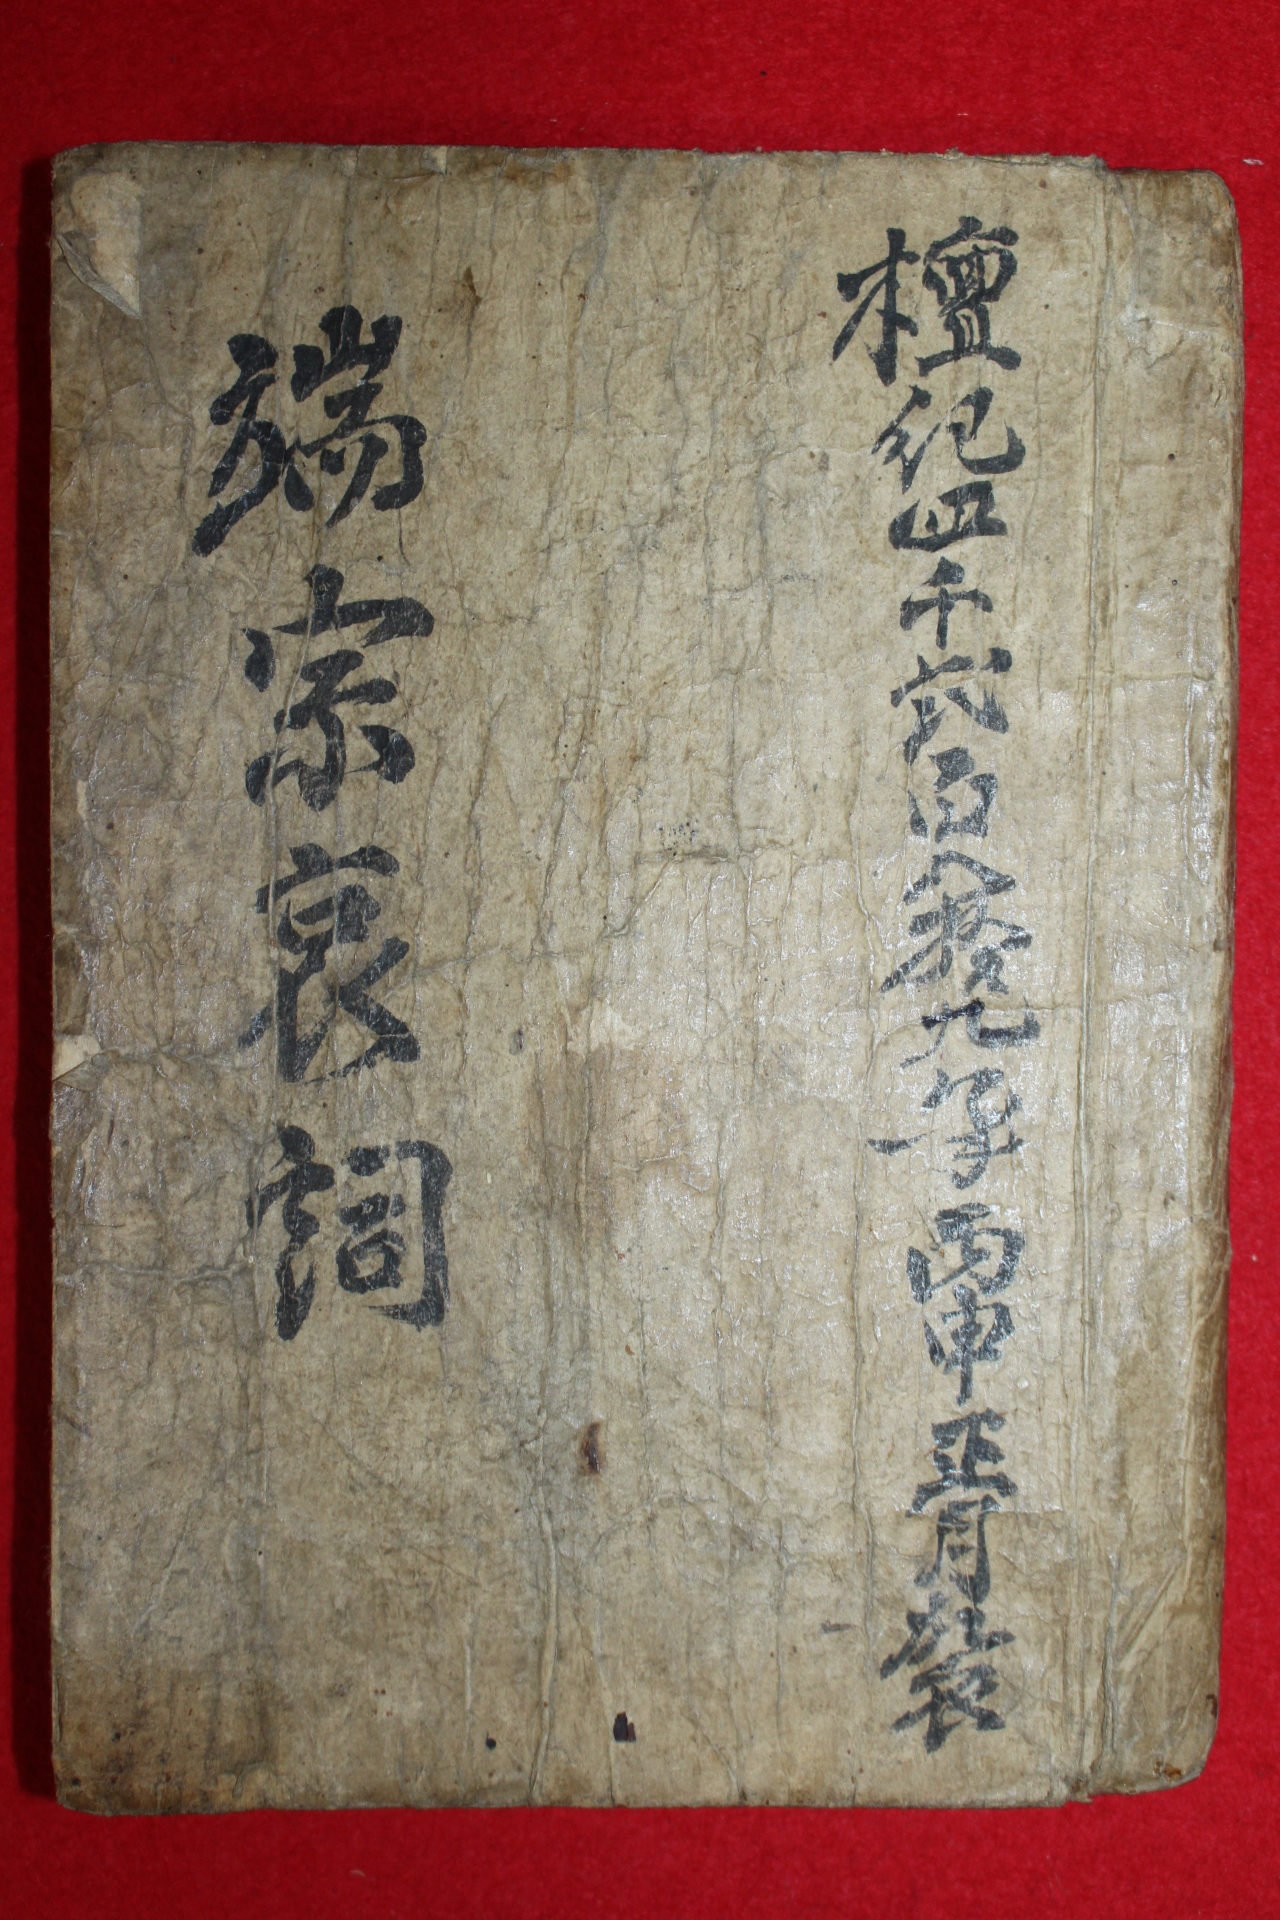 檀紀四千貳百八拾九年丙申正月裝
端宗哀詞